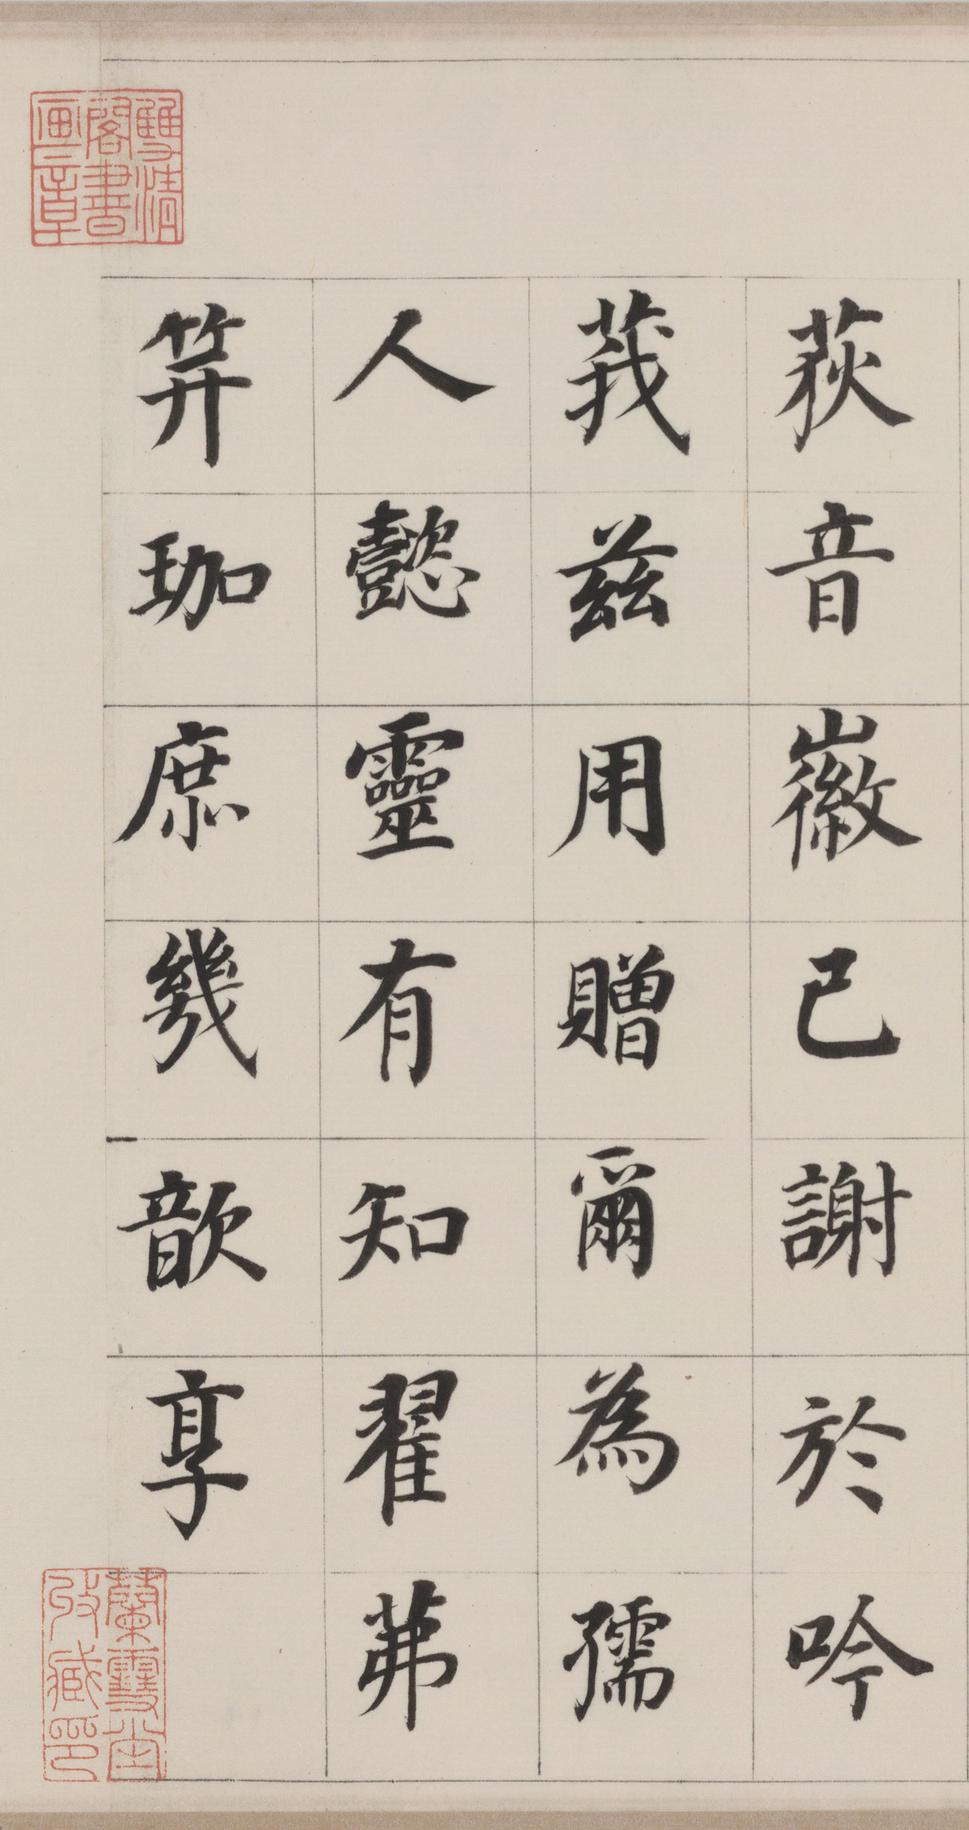 荻音徽已謝於吟
莪茲用贈爾為孺
人懿靈有知翟茀
笄珈庶幾歆享
雙清閣書画章
蘭雪堂收藏印